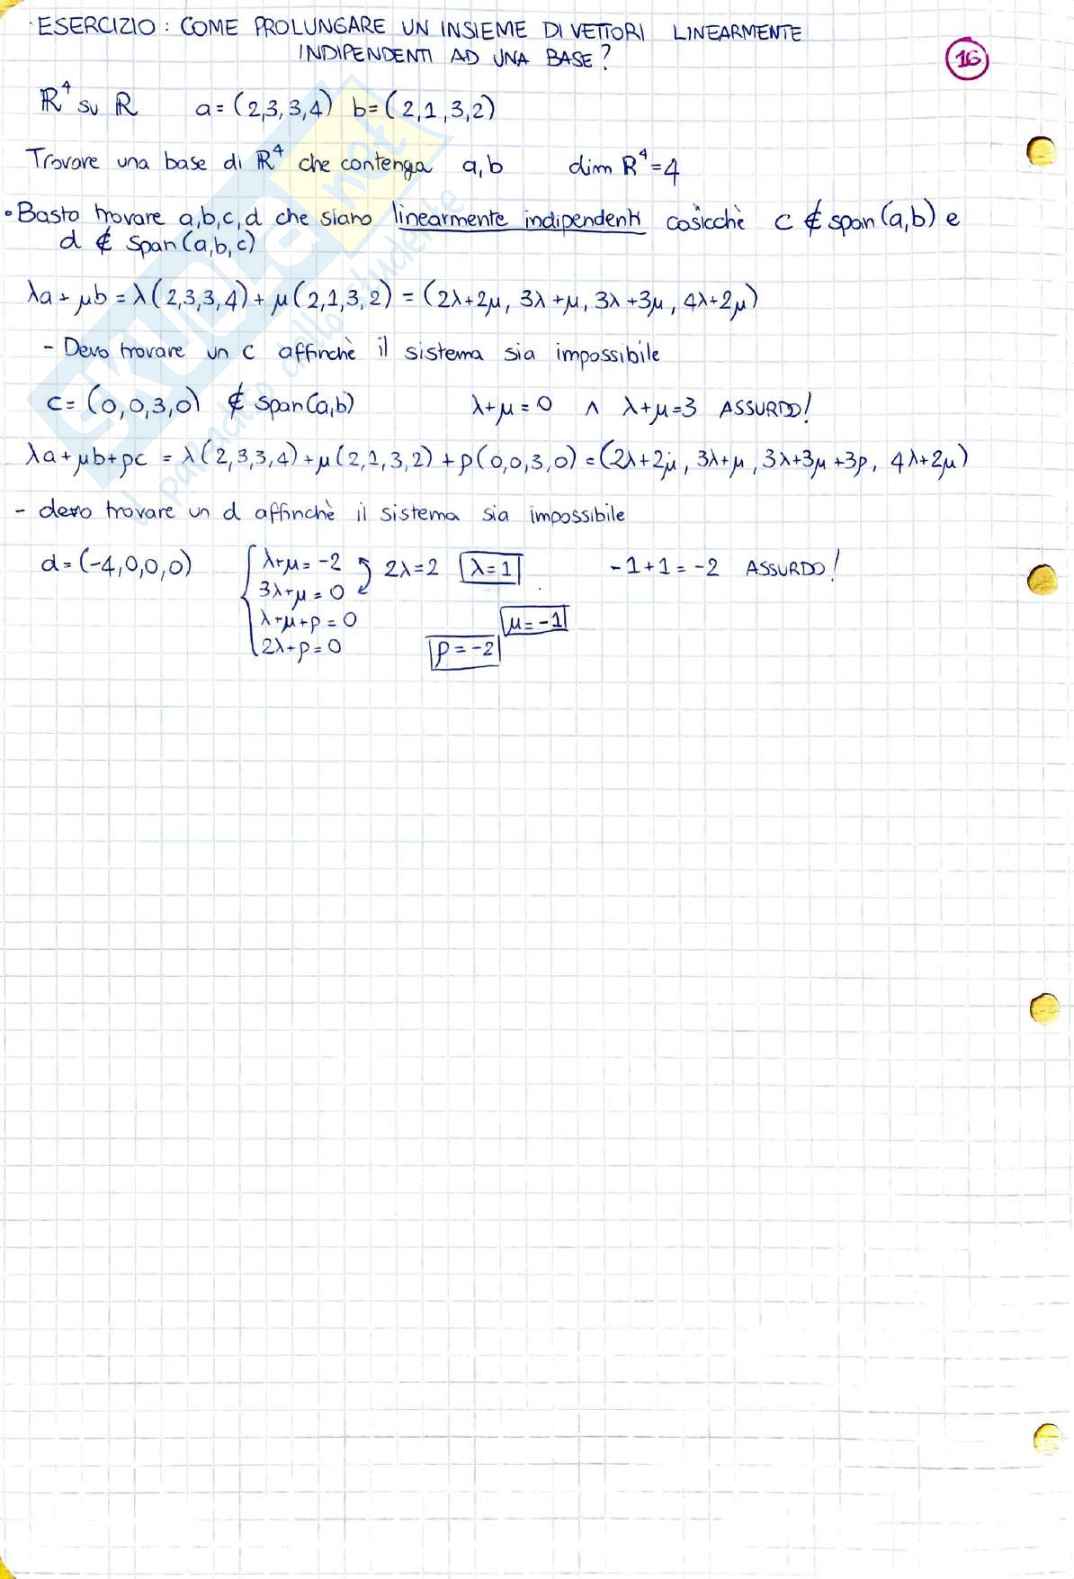 ESERCIZIO: COME PROLUNGARE UN INSIEME DI VETTORI LINEARMENTE
INDIPENDENTI AD UNA BASE?
16
R⁴ su R a=(2,3,3,4) b=(2,1,3,2)
Trovare una base di R⁴ che contenga a,b dim R⁴=4
• Basta trovare a,b,c,d che siano linearmente indipendenti cosicchè c ∉ span(a,b) e
d ∉ span(a,b,c)
λa+μb=λ(2,3,3,4)+μ(2,1,3,2)=(2λ+2μ, 3λ+μ, 3λ+3μ, 4λ+2μ)
- Devo trovare un c affinchè il sistema sia impossibile
c=(0,0,3,0) ∉ span(a,b) λ+μ=0 ∧ λ+μ=3 ASSURDO!
λa+μb+ρc =λ(2,3,3,4)+μ(2,1,3,2)+ρ(0,0,3,0)=(2λ+2μ, 3λ+μ, 3λ+3μ+3ρ, 4λ+2μ)
- devo trovare un d affinchè il sistema sia impossibile
d=(-4,0,0,0) { λ+μ=-2 2λ=2 λ=1 -1+1=-2 ASSURDO!
3λ+μ=0
λ+μ+ρ=0 μ=-1
2λ+ρ=0 ρ=-2
SKUOLA.net